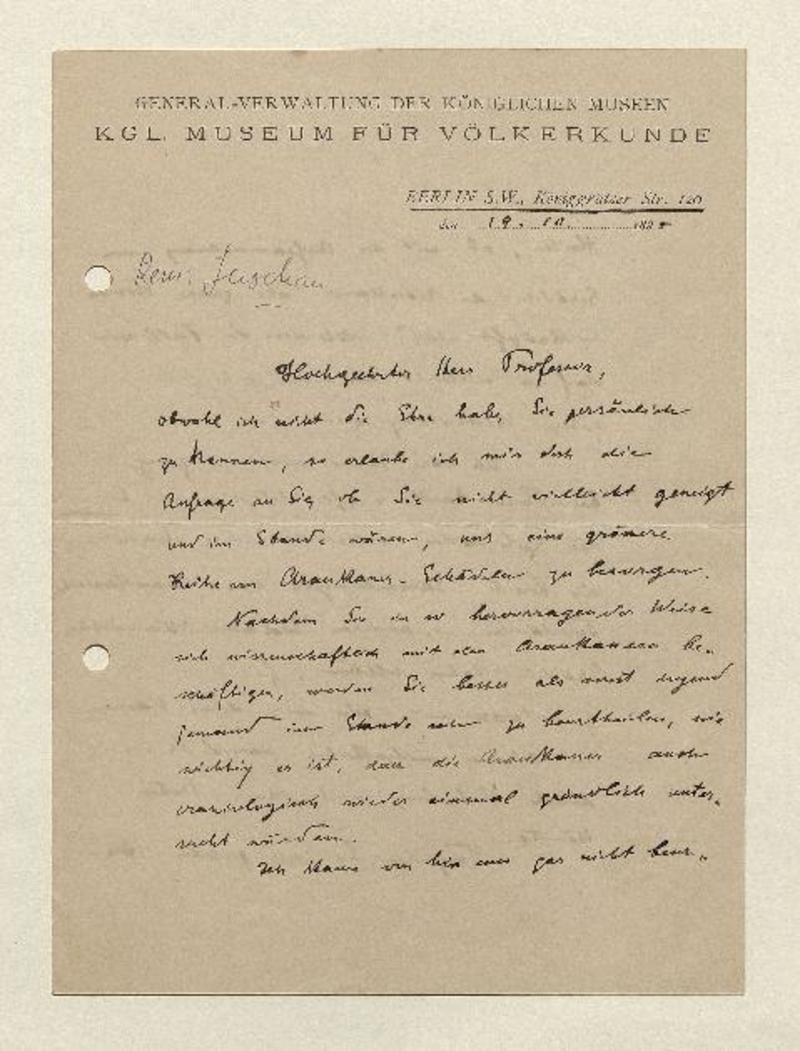 GENERAL-VERWALTUNG DER KÖNIGLICHEN MUSEEN
KGL. MUSEUM FÜR VÖLKERKUNDE
BERLIN S.W., Königgrätzer Str. 120
den 19. 10. 189
Luschan
Hochgeehrter Herr Professor,
obwohl ich nicht die Ehre habe, Sie persönlich
zu kennen, so erlaube ich mir doch die
Anfrage an Sie, ob Sie nicht vielleicht geneigt
und im Stande wären, uns eine grössere
Reihe von Araukaner-Schädeln zu besorgen.
Nachdem Sie in so hervorragender Weise
sich wissenschaftlich mit den Araukanern be-
schäftigen, werden Sie besser als sonst irgend
jemand im Stande sein zu beurtheilen, wie
wichtig es ist, dass die Araukaner auch
craniologisch wieder einmal gründlich unter-
sucht würden.
Ich kann von hier aus gar nicht beur-